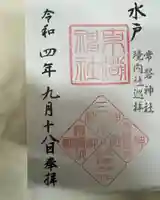 水戸
常磐神社
境内社巡拝
東湖神社
三
令和四年九月十八日奉拝